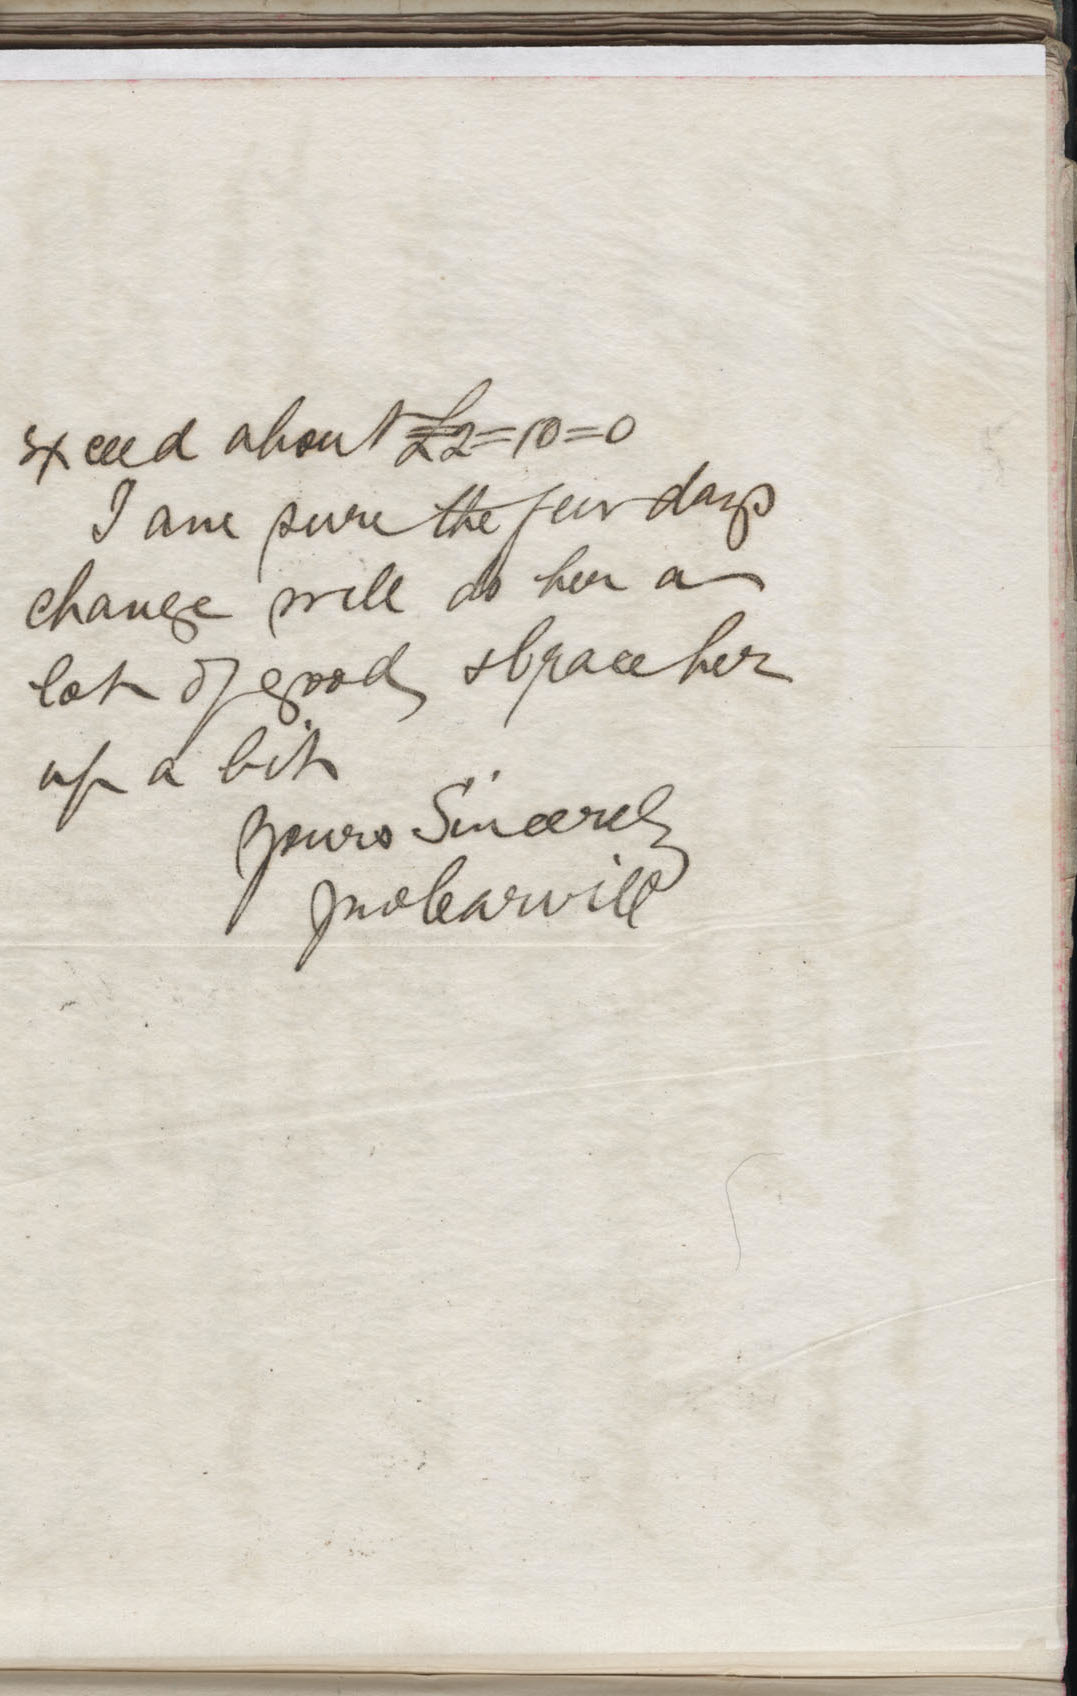 exceed about £2=10=0
I am sure the few days
change will do her a
lot of good, & brace her
up a bit
Yours Sincerely
Jno Carvill